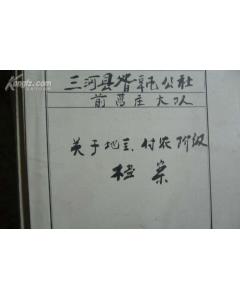 Kongfz.com
三河县齐心庄公社
前蒿庄大队
关于地主、付农阶级
档案